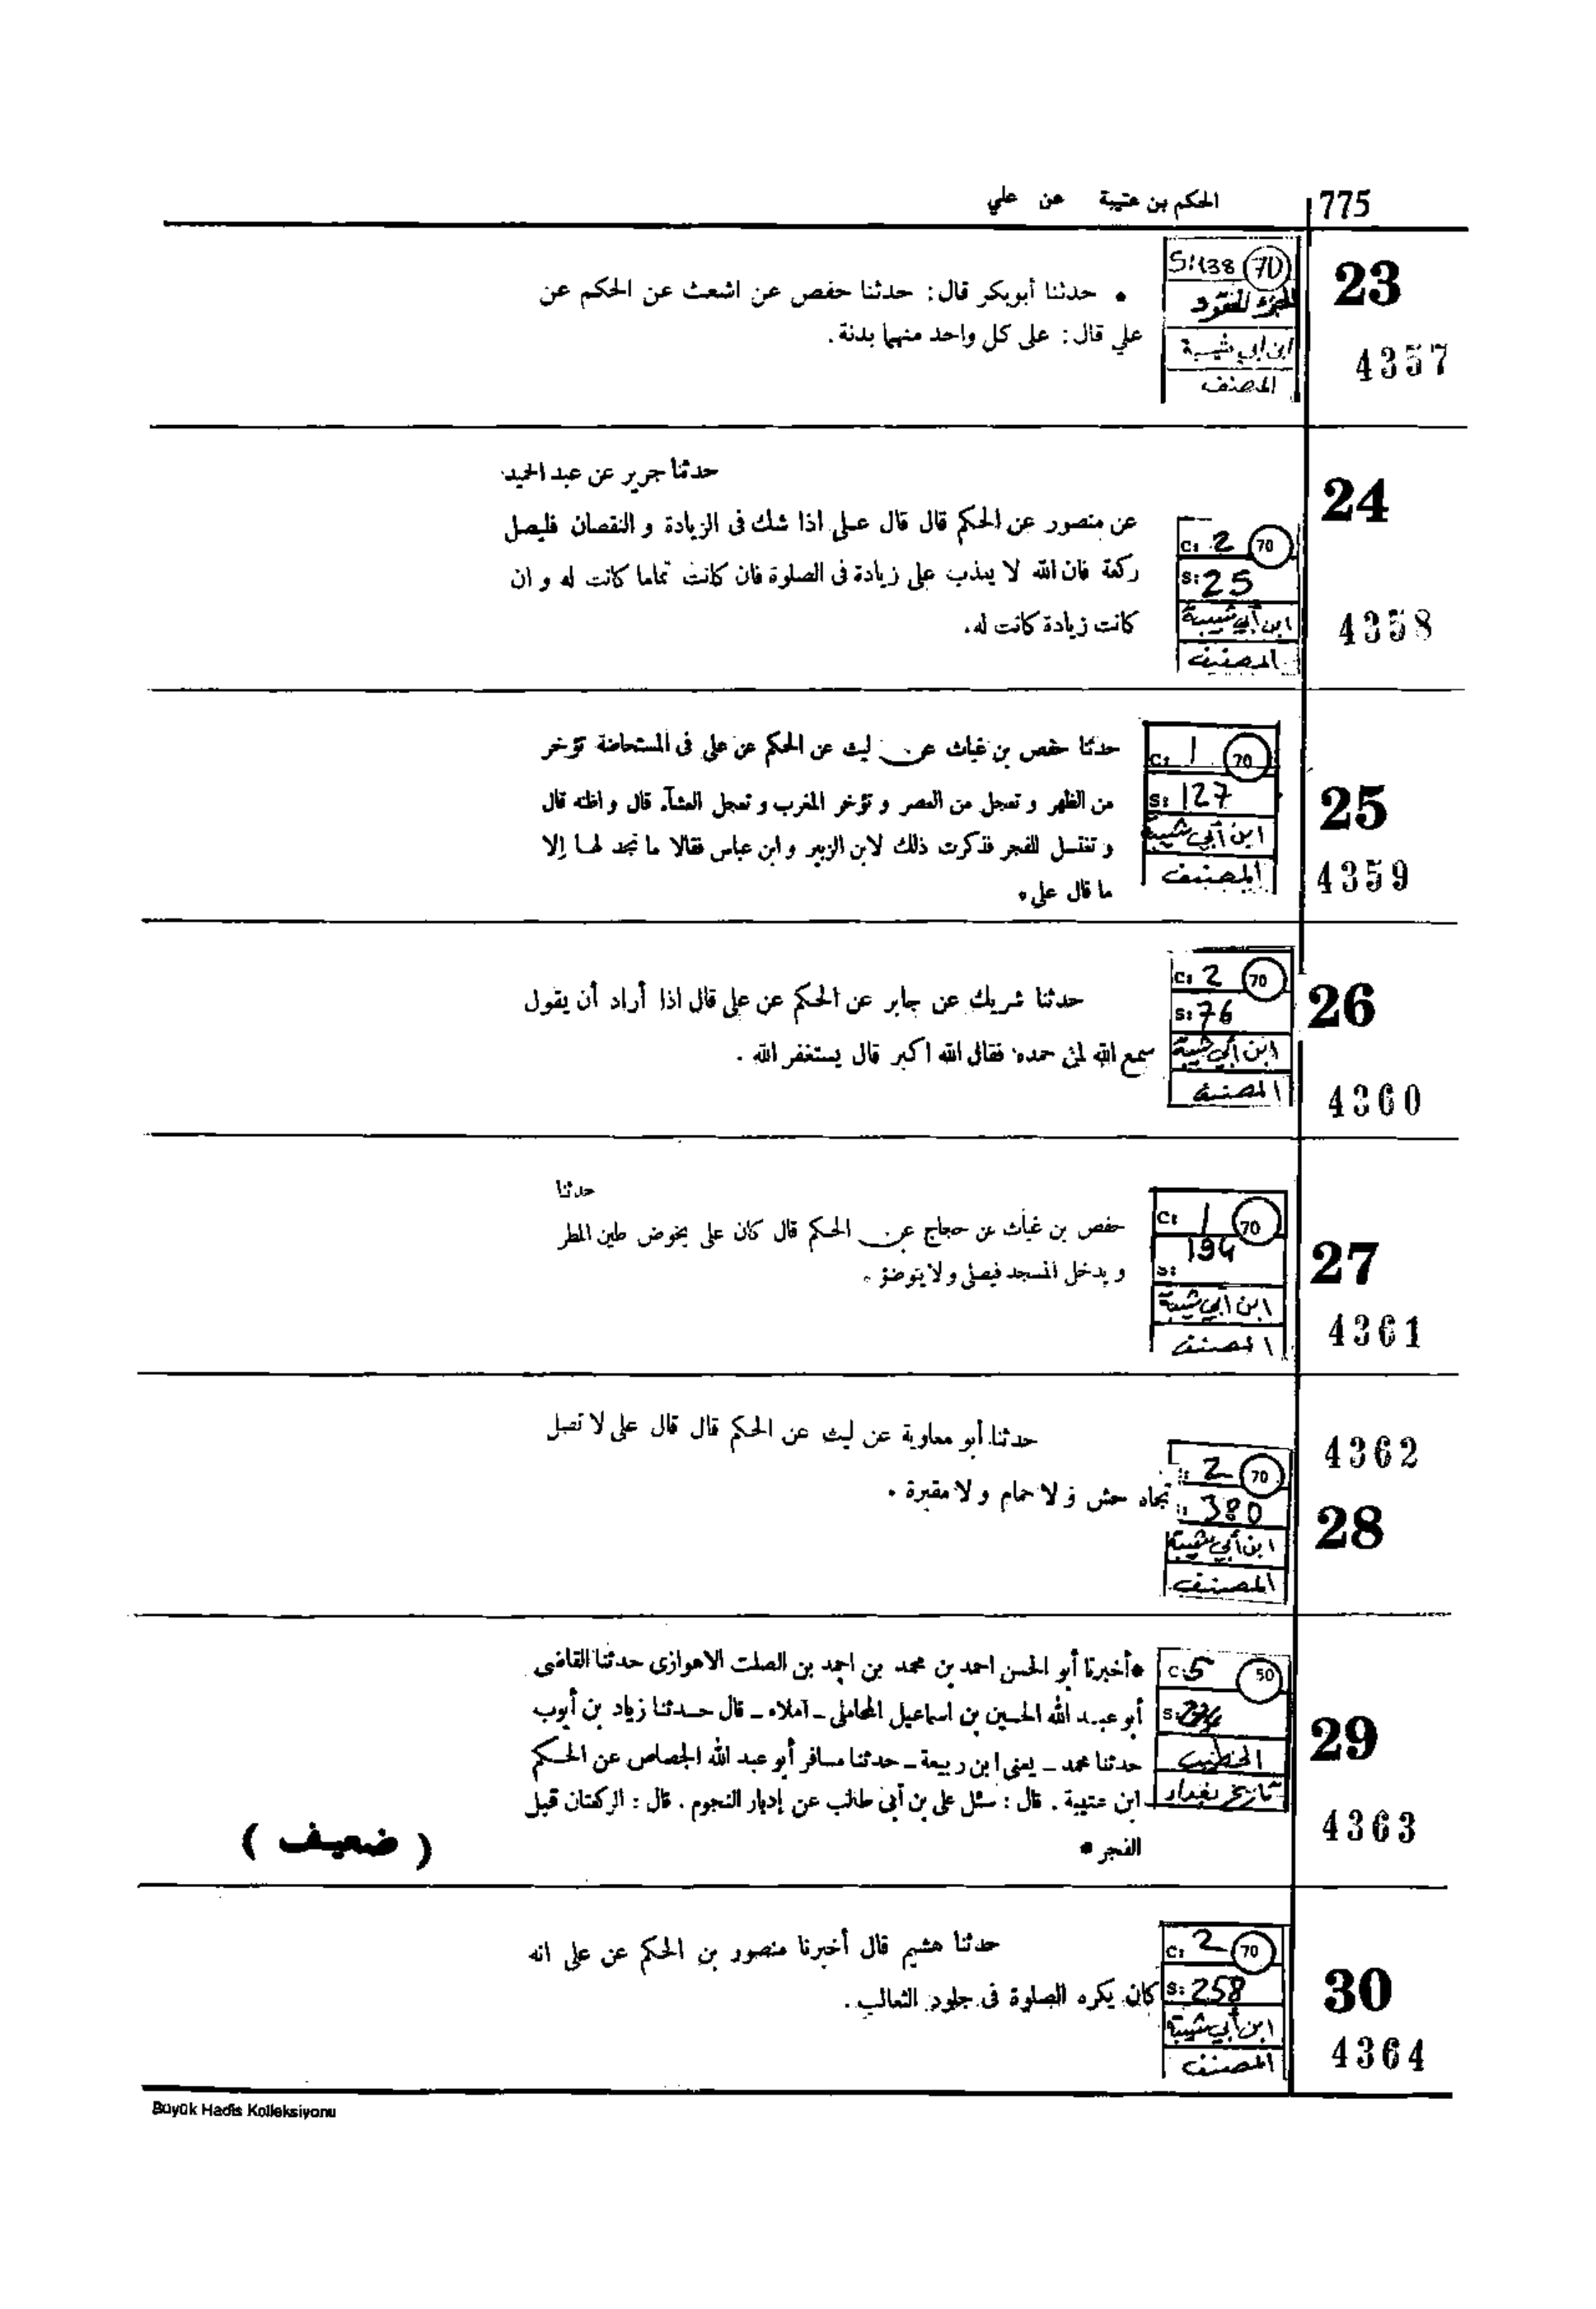 775
الحكم بن عتيبة عن علي
23
S:138 70
الجزء المفقود
ابن ابي شيبة
المصنف
4357
• حدثنا أبوبكر قال: حدثنا حفص عن اشعث عن الحكم عن
علي قال: على كل واحد منهما بدنة.
24
C: 2 70
S: 25
ابن أبي شيبة
المصنف
4358
حدثنا جرير عن عبد الحميد
عن منصور عن الحكم قال قال على اذا شك فى الزيادة و النقصان فليصل
ركعة فان الله لا يعذب على زيادة فى الصلوة فان كانت تماما كانت له و ان
كانت زيادة كانت له.
25
C: 1 70
S: 127
ابن أبي شيبة
المصنف
4359
حدثنا حفص بن غياث عن ليث عن الحكم عن على فى المستحاضة تؤخر
من الظهر و تعجل من العصر و تؤخر المغرب و تعجل العشآء قال و اظنه قال
و تغتسل للفجر فذكرت ذلك لابن الزبير و ابن عباس فقالا ما نجد لها إلا
ما قال على ه
26
C: 2 70
S: 76
ابن أبي شيبة
المصنف
4360
حدثنا شريك عن جابر عن الحكم عن على قال اذا أراد أن يقول
سمع الله لمن حمده فقال الله اكبر قال يستغفر الله .
27
C: 1 70
S: 194
ابن ابي شيبة
المصنف
4361
حدثنا
حفص بن غياث عن حجاج عن الحكم قال كان على يخوض طين المطر
و يدخل المسجد فيصلى و لا يتوضؤ .
4362
28
2 70
380
ابن أبي شيبة
المصنف
حدثنا أبو معاوية عن ليث عن الحكم قال قال على لا تصل
تجاه حش و لا حمام و لا مقبرة .
29
C: 5 50
S:
الخطيب
تاريخ بغداد
4363
•أخبرنا أبو الحسن احمد بن محمد بن احمد بن الصلت الاهوازى حدثنا القاضى
أبو عبد الله الحسين بن اسماعيل المحاملى ـ املاء ـ قال حدثنا زياد بن أيوب
حدثنا محمد ـ يعنى ابن ربيعة ـ حدثنا مسافر أبو عبد الله الجصاص عن الحكم
ابن عتيبة . قال : سئل على بن أبى طالب عن إدبار النجوم . قال : الركعتان قبل
الفجر •
( ضعيف )
30
C: 2 70
S: 258
ابن أبي شيبة
المصنف
4364
حدثنا هشيم قال أخبرنا منصور بن الحكم عن على انه
كان يكره الصلوة فى جلود الثعالب.
Büyük Hadis Kolleksiyonu